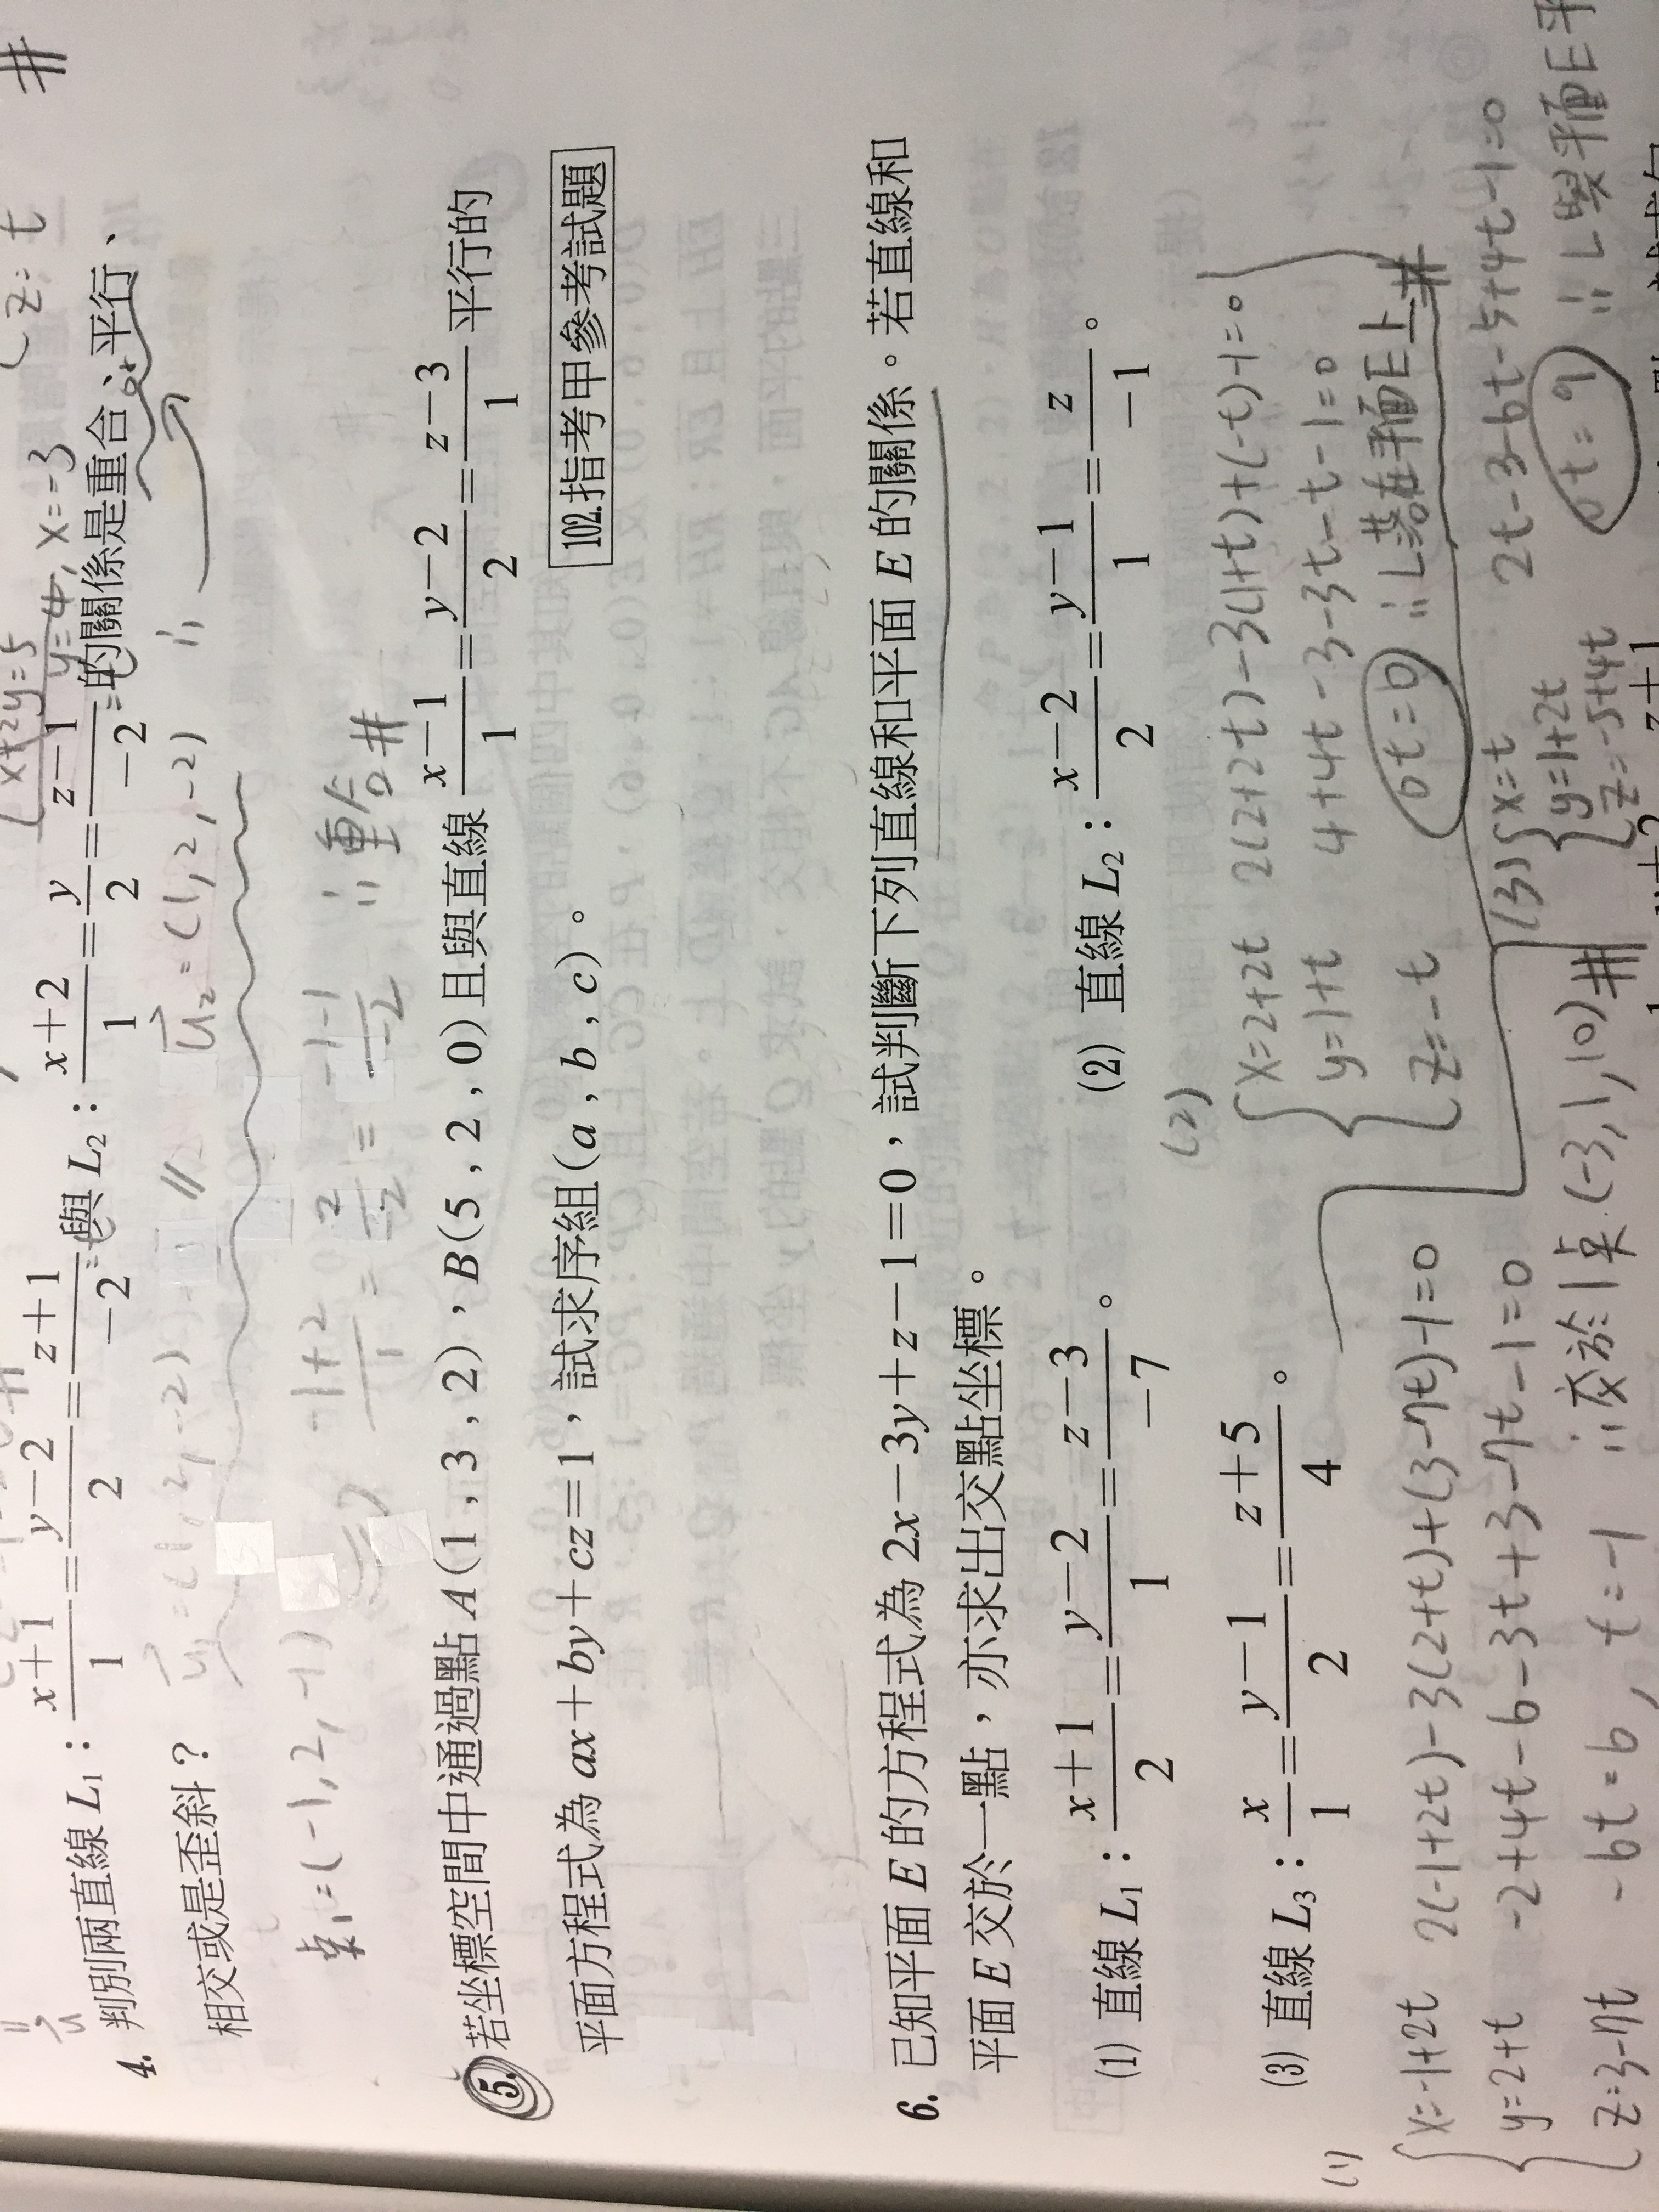 x+2y=5
y=4, x=-3
z=t
#
4. 判別兩直線 L₁：(x+1)/1=(y-2)/2=(z+1)/-2 與 L₂：(x+2)/1=y/2=(z-1)/-2 的關係是重合、平行、
相交或是歪斜？
u₂=(1,2,-2)
//
點₁=(-1,2,-1)
(-1+2)/1=2/2=(-1-1)/-2 ∴重合#
5. 若坐標空間中通過點 A(1,3,2)，B(5,2,0)且與直線 (x-1)/1=(y-2)/2=(z-3)/1 平行的
平面方程式為 ax+by+cz=1，試求序組(a,b,c)。
102.指考甲參考試題
6. 已知平面 E 的方程式為 2x-3y+z-1=0，試判斷下列直線和平面 E 的關係。若直線和
平面 E 交於一點，亦求出交點坐標。
(1) 直線 L₁：(x+1)/2=(y-2)/1=(z-3)/-7。
(2) 直線 L₂：(x-2)/2=(y-1)/1=z/-1。
(3) 直線 L₃：x/1=(y-1)/2=(z+5)/4。
(1)
x=-1+2t
y=2+t
z=3-7t
2(-1+2t)-3(2+t)+(3-7t)-1=0
-2+4t-6-3t+3-7t-1=0
-6t=6, t=-1 ∴交於1點(-3,1,10)#
(2)
x=2+2t
y=1+t
z=-t
2(2+2t)-3(1+t)+(-t)-1=0
4+4t-3-3t-t-1=0
0t=0 ∴L落在平面E上#
(3)
x=t
y=1+2t
z=-5+4t
2t-3-6t-5+4t-1=0
0t=9 ∴L與平面E平